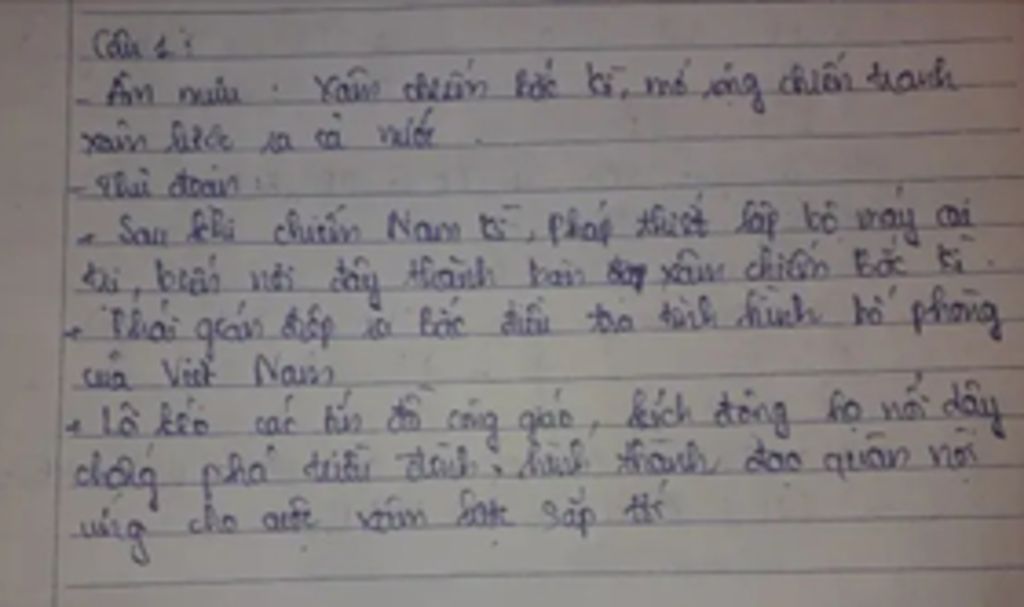 Câu 1:
- Âm mưu: Xâm chiếm Bắc kì, mở rộng chiến tranh
xâm lược ra cả nước.
- Thủ đoạn:
+ Sau khi chiếm Nam kì, Pháp thiết lập bộ máy cai
trị, biến nơi đây thành bàn đạp xâm chiếm Bắc kì.
+ Phái gián điệp ra Bắc điều tra tình hình bố phòng
của Việt Nam
+ Lôi kéo các tín đồ công giáo, kích động họ nổi dậy
chống phá triều đình, hình thành đạo quân nội
ứng cho cuộc xâm lược sắp tới